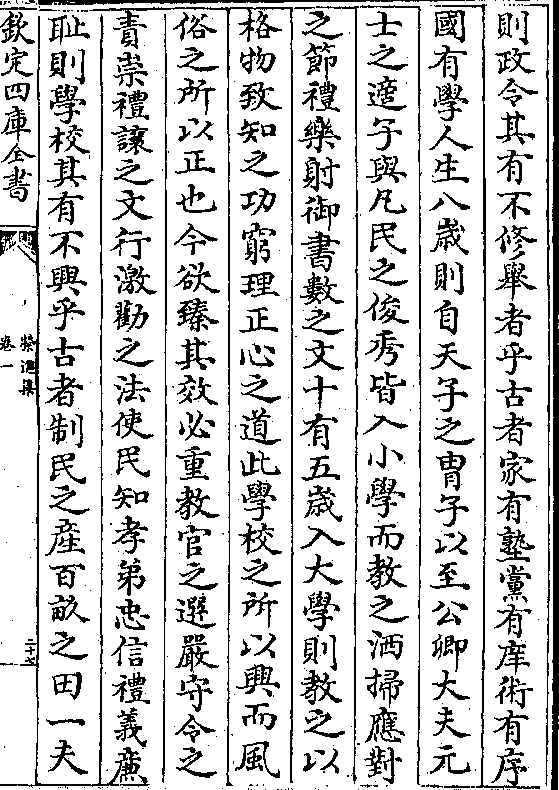 則政令其有不修舉者乎古者家有塾黨有庠術有序
國有學人生八歳則自天子之胄子以至公卿大夫元
士之適子與凡民之俊秀皆入小學而教之洒掃應對
之節禮樂射御書數之文十有五歳入大學則教之以
格物致知之功窮理正心之道此學校之所以興而風
俗之所以正也今欲臻其效必重教官之選嚴守令之
責崇禮讓之文行激勸之法使民知孝弟忠信禮義廉
耻則學校其有不興乎古者制民之産百畝之田一夫
欽定四庫全書
卷一